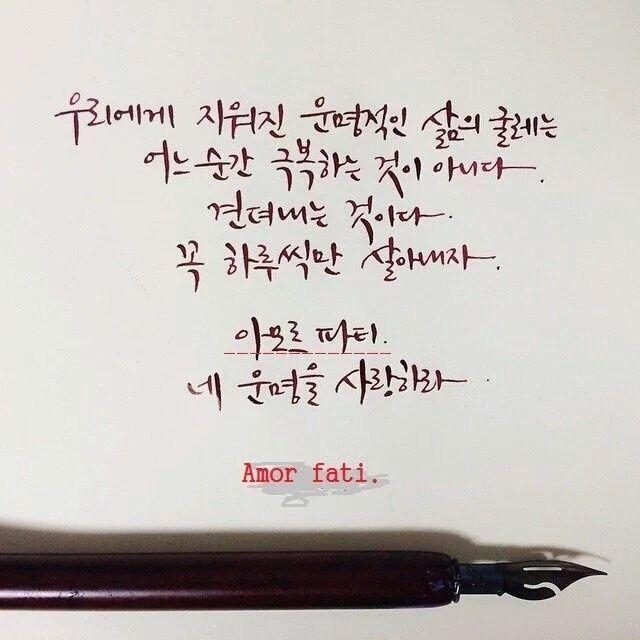 우리에게 지워진 운명적인 삶의 굴레는
어느 순간 극복하는 것이 아니다.
견뎌내는 것이다.
꼭 하루씩만 살아내자.
아모르 파티.
네 운명을 사랑하라.
Amor fati.